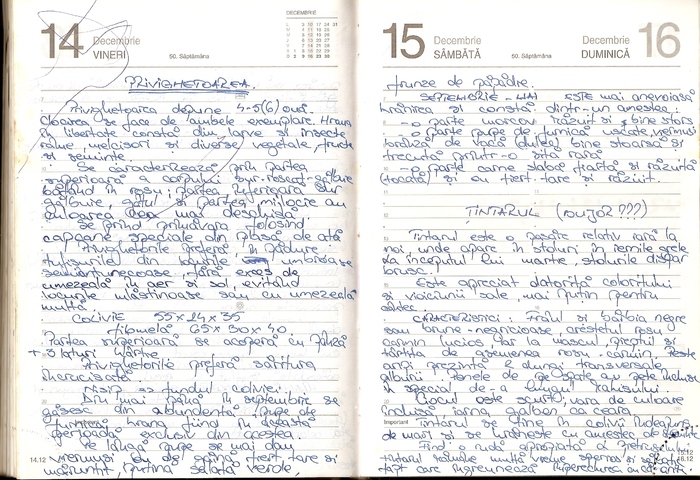 DECEMBRIE
14 Decembrie
VINERI
50. Săptămâna
PRIVIGHETOAREA
Privighetoarea depune 4-5(6) ouă.
Clocirea se face de ambele exemplare. Hrana
în libertate constă din larve și insecte
râme, melcișori și diverse vegetale, fructe
și semințe.
Se caracterizează prin partea
superioară a corpului sur-roșcat-gălbuie
bătând în roșu; partea inferioară sur
gălbuie, gâtul și partea mijlocie au
culoarea mai deschisă.
Se prind primăvara folosind
capcane speciale din plasă de ață
Privighetorile preferă, în pădure,
tufișurile din umbroase
semiîntunecoase, fără exces de
umezeală în aer și sol, evitând
locurile mlăștinoase sau cu umezeală
multă.
COLIVIE 55x24x35
femelă 65x30x40.
Partea superioară se acoperă cu pânză
+ 3 laturi hârtie
Privighetorile preferă săritura
încrucișată.
Nisip => fundul coliviei.
Din mai până în septembrie se
găsesc din abundență pupe de
furnică hrana fiind în această
perioadă exclusiv din acestea.
Pe lângă pupe se mai dau
viermuși ou de găină fiert tare și
mărunțit, puțină salată verde,
14.12
15 Decembrie
SÂMBĂTĂ
50. Săptămâna
Decembrie 16
DUMINICĂ
frunze de păpădie.
SEPTEMBRIE - MAI este mai anevoioasă
hrănirea și constă dintr-un amestec:
- o parte morcov răzuit și bine stors
- o parte pupe de furnică uscate, vermi
brânză de vacă (dulce) bine stoarsă și
trecută printr-o sită rară
- o parte carne slabă fiartă și răzuită
(tocată) și ou fiert tare și răzuit.
ȚINTARUL (BUJOR???)
Țintarul este o pasăre relativ rară la
noi, unde apare în stoluri în iernile grele
La începutul lui martie, stolurile dispar
brusc.
Este apreciat datorită coloritului
și vioiciunii sale, mai puțin pentru
CARACTERISTICI: Fraul și bărbia negre
sau brune-negricioase, creștetul roșu
carmin lucios iar la mascul, pieptul și
târtița de asemenea roșu-carmin. Peste
aripi prezintă 2 dungi transversale
albui. Penele de pe spate au pete închise
în
Ciocul este scurt, vara de culoare
închisă, iarna galben ca ceara
Important
Țintarul se ține în colivii
de mari și se hrănește cu amestec de
Fiind o rudă apropiată a
țintarul rămâne multă vreme speriat și
fapt care îngreunează împerecherea
15.12
16.12